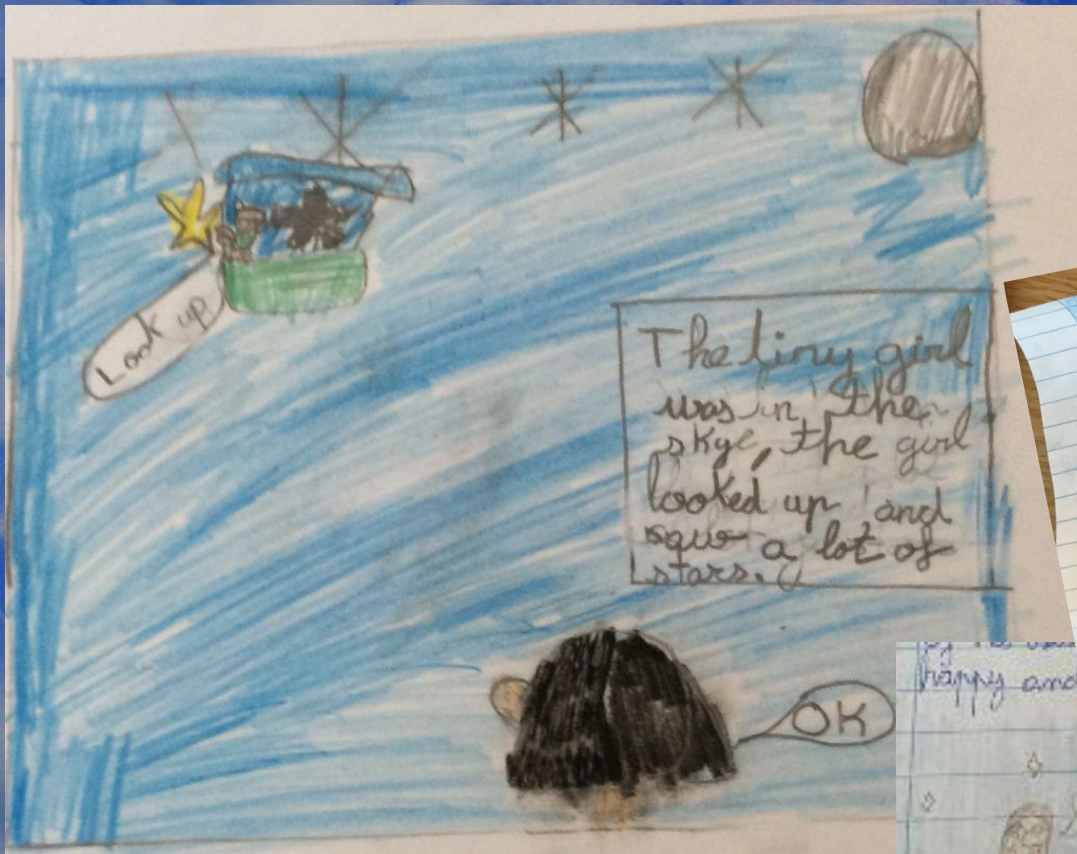 Look up
The tiny girl
was in the
skye, the girl
looked up and
saw a lot of
stars.
OK
happy and